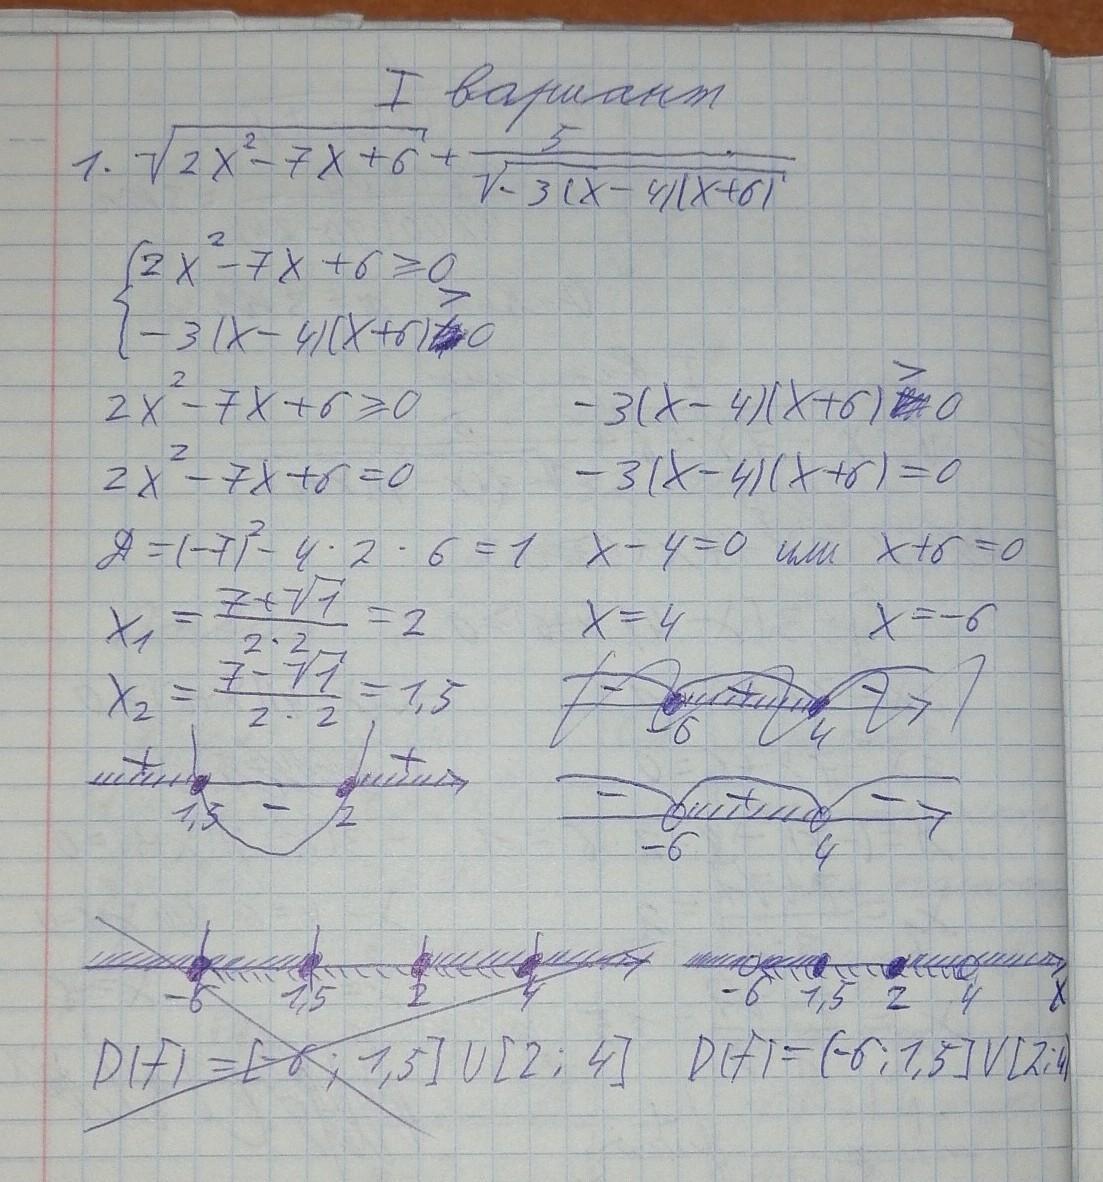 I вариант
1. √(2x²-7x+6) + 5/√(-3(x-4)(x+6))
{2x²-7x+6⩾0
-3(x-4)(x+6)>0
2x²-7x+6⩾0 -3(x-4)(x+6)>0
2x²-7x+6=0 -3(x-4)(x+6)=0
D=(-7)²-4·2·6=1 x-4=0 или x+6=0
x₁ = (7+√1)/(2·2) = 2 x=4 x=-6
x₂ = (7-√1)/(2·2) = 1,5
- + -
-6 4
+ - +
1,5 2
- + -
-6 4
-6 1,5 2 4
-6 1,5 2 4 x
D(f)=[-6; 1,5]U[2; 4] D(f)=(-6;1,5]U[2;4)